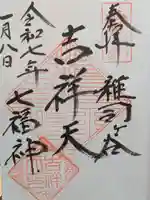 奉拝
雑司ヶ谷
吉祥天
七福神
令和七年
一月八日